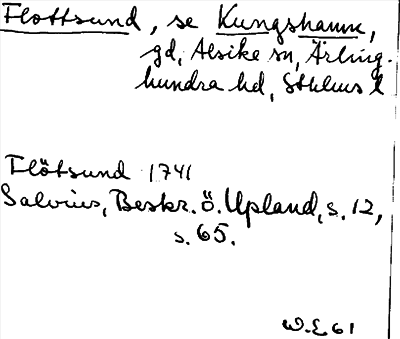 Flottsund, se Kungshamn,
gd, Alsike sn, Ärling-
hundra hd, Sthlms l
Flötsund 1741
Salvius, Beskr. ö. Upland, s. 12,
s. 65.
W.E 61